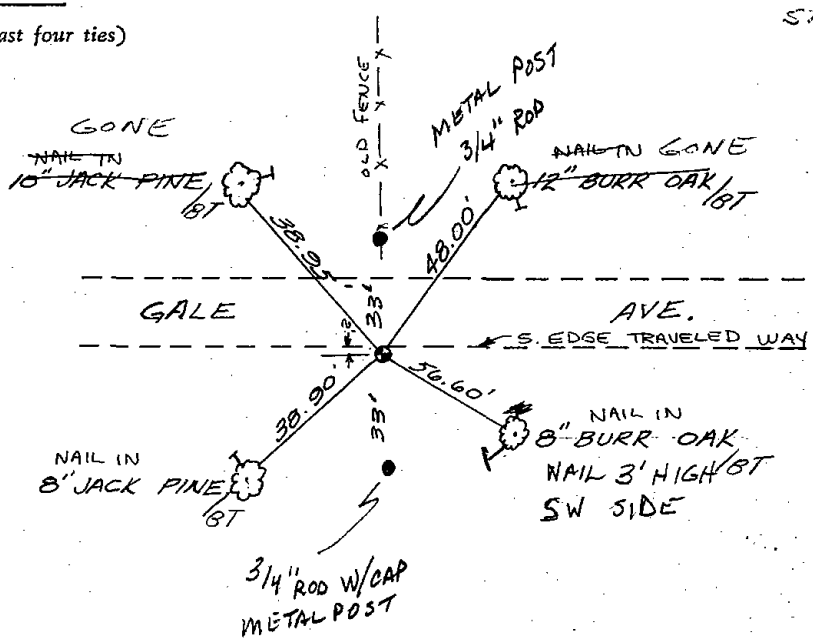 ast four ties)
GONE
NAIL IN
10" JACK PINE
/BT
OLD FENCE
METAL POST
3/4" ROD
NAIL IN GONE
12" BURR OAK
/BT
38.95'
33'
48.00'
GALE AVE.
2'
S. EDGE TRAVELED WAY
38.90'
33'
56.60'
NAIL IN
8" JACK PINE
/BT
NAIL IN
8" BURR OAK
NAIL 3' HIGH /BT
SW SIDE
3/4" ROD W/CAP
METAL POST